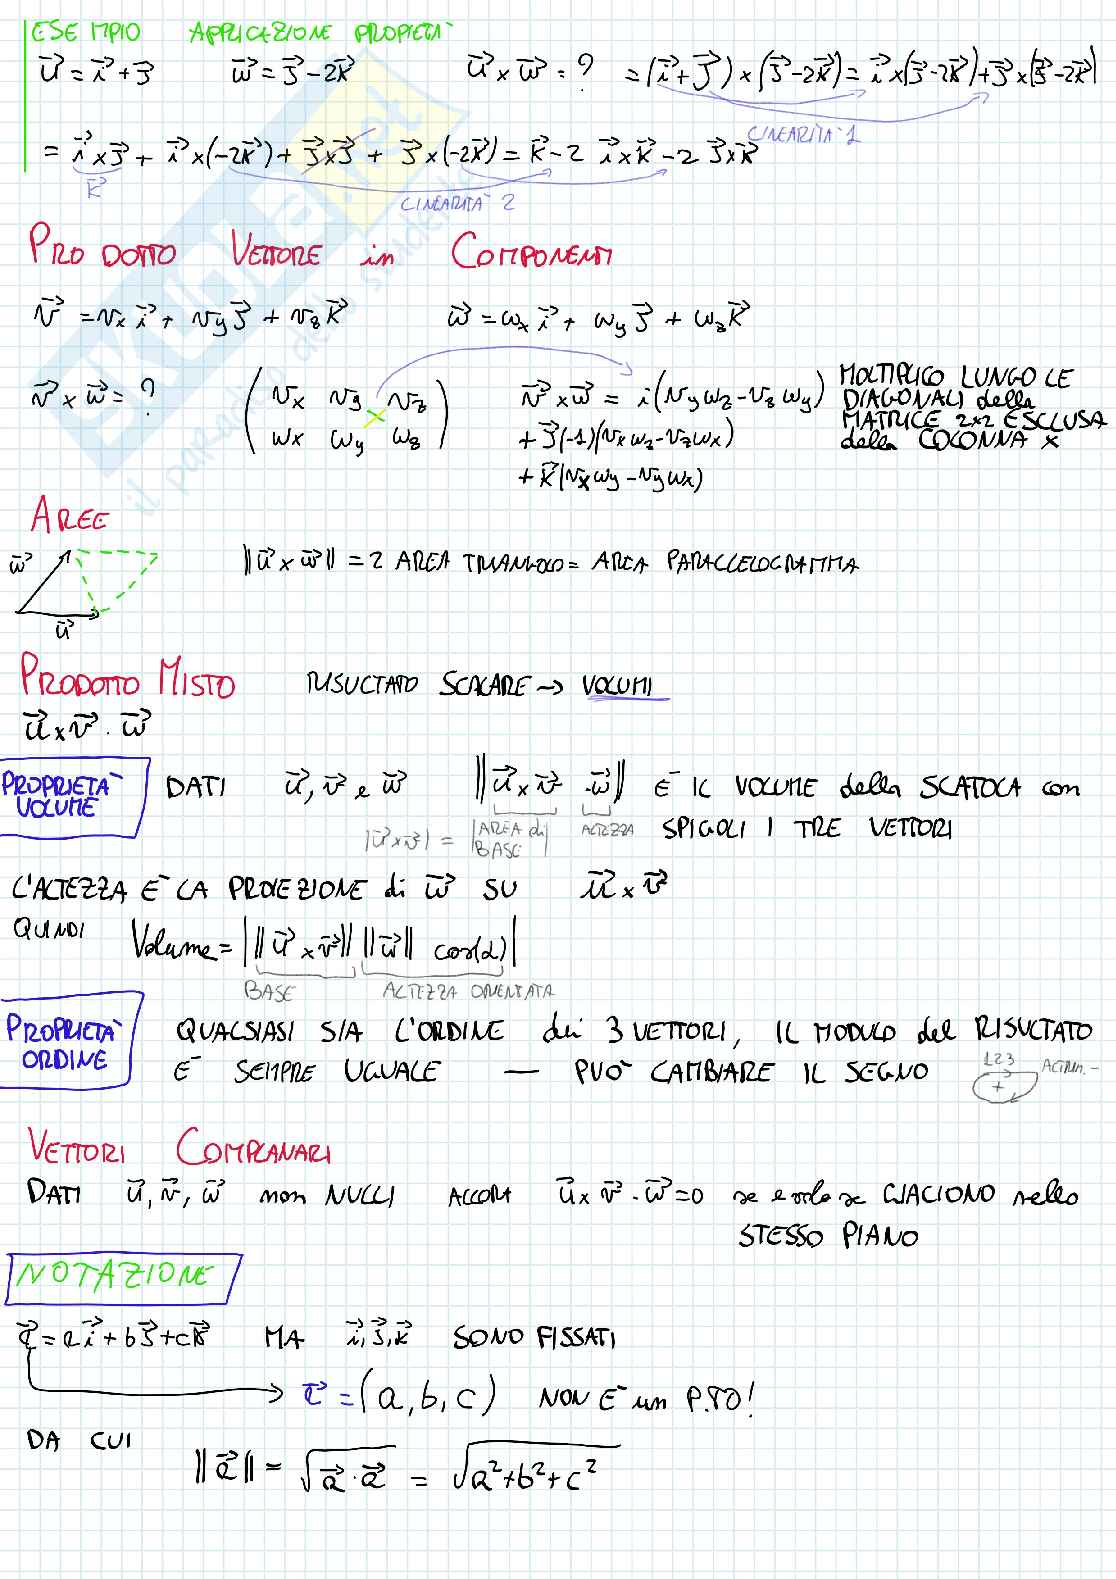 ESEMPIO APPLICAZIONE PROPIETA'
u⃗ = i⃗ + j⃗ w⃗ = j⃗ - 2k⃗ u⃗ × w⃗ = ? = (i⃗ + j⃗) × (j⃗ - 2k⃗) = i⃗ × (j⃗ - 2k⃗) + j⃗ × (j⃗ - 2k⃗)
LINEARITA' 1
= i⃗ × j⃗ + i⃗ × (-2k⃗) + j⃗ × j⃗ + j⃗ × (-2k⃗) = k⃗ - 2 i⃗ × k⃗ - 2 j⃗ × k⃗
k⃗
LINEARITA' 2
PRODOTTO VETTORE in COMPONENTI
v⃗ = vx i⃗ + vy j⃗ + vz k⃗ w⃗ = wx i⃗ + wy j⃗ + wz k⃗
v⃗ × w⃗ = ? ( vx vy vz ) v⃗ × w⃗ = i (vy wz - vz wy) MOLTIPLICO LUNGO LE
DIAGONALI della
( wx wy wz ) + j⃗ (-1)(vx wz - vz wx) MATRICE 2x2 ESCLUSA
della COLONNA x
+ k⃗ (vx wy - vy wx)
AREE
w⃗
u⃗
||u⃗ × w⃗|| = 2 AREA TRIANGOLO = AREA PARALLELOGRAMMA
PRODOTTO MISTO RISULTATO SCALARE → VOLUMI
u⃗ × v⃗ · w⃗
PROPRIETA' VOLUME
DATI u⃗, v⃗ e w⃗ ||u⃗ × v⃗ · w⃗|| E' IL VOLUME della SCATOLA con
|u⃗ × v⃗| = |AREA di BASE| ALTEZZA SPIGOLI I TRE VETTORI
L'ALTEZZA E' LA PROIEZIONE di w⃗ SU u⃗ × v⃗
QUINDI Volume = | ||u⃗ × v⃗|| ||w⃗|| cos(α) |
BASE ALTEZZA ORIENTATA
PROPRIETA' ORDINE
QUALSIASI SIA L'ORDINE dei 3 VETTORI, IL MODULO del RISULTATO
E' SEMPRE UGUALE — PUO' CAMBIARE IL SEGNO
1 2 3
+
VETTORI COMPLANARI
DATI u⃗, v⃗, w⃗ non NULLI ALLORA u⃗ × v⃗ · w⃗ = 0 se e solo se GIACIONO nello
STESSO PIANO
NOTAZIONE
= a i⃗ + b j⃗ + c k⃗ MA i⃗, j⃗, k⃗ SONO FISSATI
= (a, b, c) NON E' un P.TO!
DA CUI
||a⃗|| = √(a⃗ · a⃗) = √(a² + b² + c²)